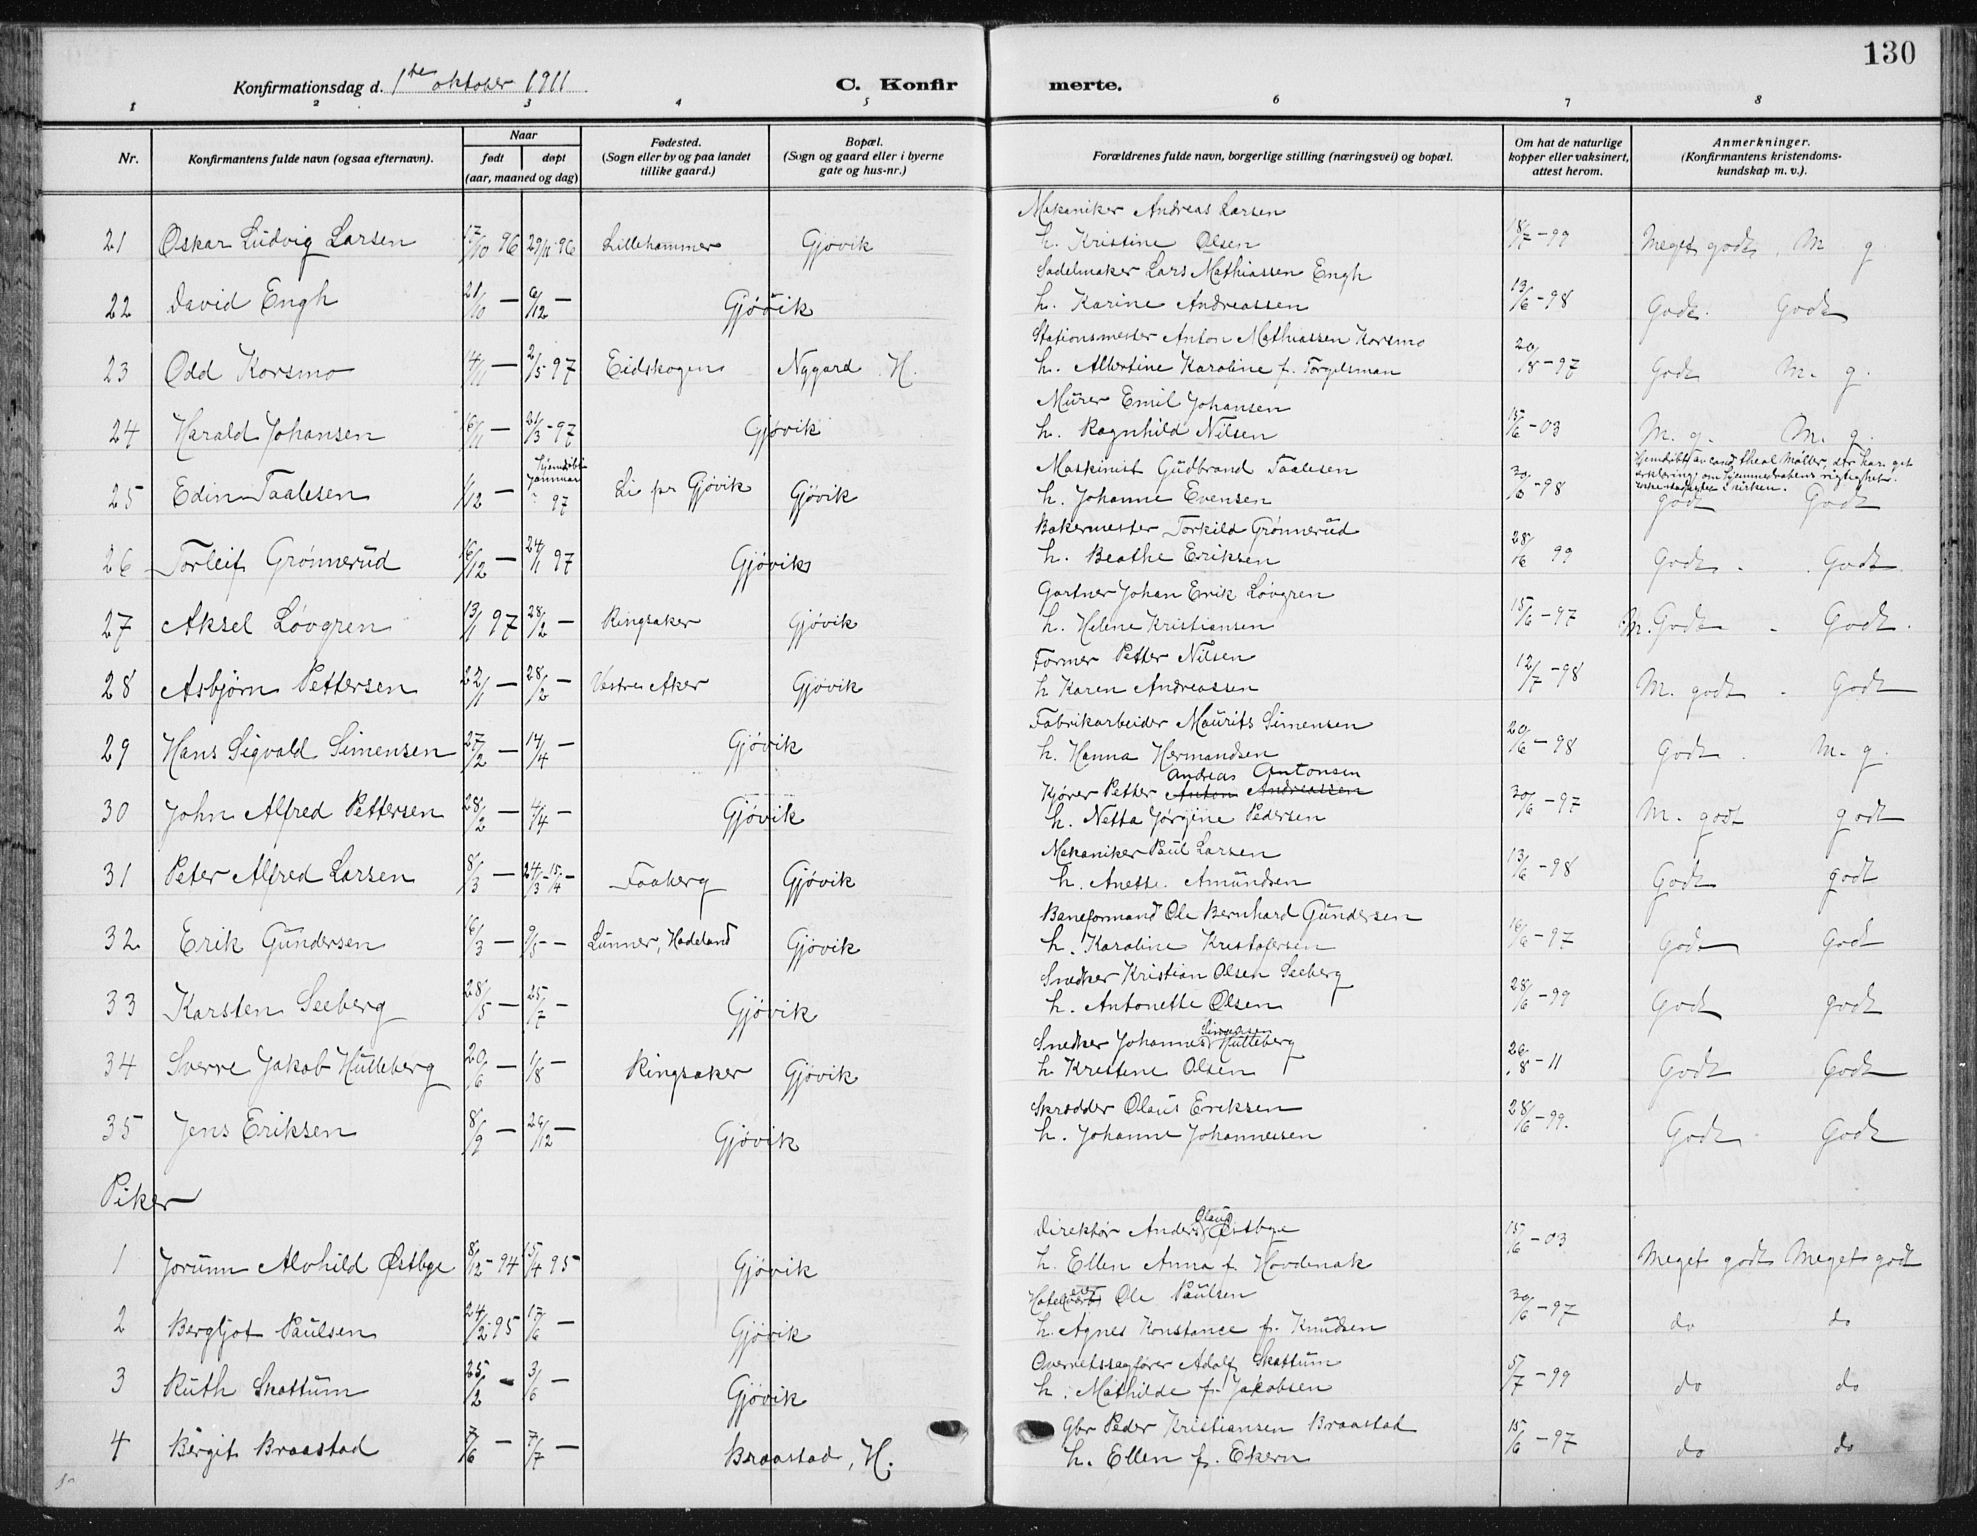 130
Konfirmationsdag d. 1ste oktober 1911
C. Konfirmerte.
1 2 3 4 5 6 7 8
Nr.
Konfirmantens fulde navn (ogsaa efternavn).
Naar
født døpt
(aar, maaned og dag)
Fødested.
(Sogn eller by og paa landet
tillike gaard.)
Bopæl.
(Sogn og gaard eller i byerne
gate og hus-nr.)
Forældrenes fulde navn, borgerlige stilling (næringsvei) og bopæl.
Om hat de naturlige
kopper eller vaksinert,
attest herom.
Anmerkninger.
(Konfirmantens kristendoms-
kundskap m. v.).
Mekaniker Andreas Larsen
21 Oskar Ludvig Larsen 17/10 96 29/11 96 Lillehammer Gjøvik h. Kristine Olsen 18/7-99 Meget godt. M g.
Sadelmaker Lars Mathiassen Engh
22 David Engh 21/10 — 6/12 — Gjøvik h. Karine Andreassen 13/6-98 Godt. Godt
Stationsmester Anton Mathiassen Korsmo
23 Odd Korsmo 14/11 — 2/5-97 Eidskogen Nygard H. h. Albertine Karoline f. Torgelsman 20/8-97 Godt M. g.
Murer Emil Johansen
24 Harald Johansen 16/11 — 21/3-97 Gjøvik h. Ragnhild Nilsen 15/6-03 M. g. M. g.
Maskinist Gudbrand Taalesen
25 Edin Taalesen 1/12 — hjemdøbt Januar 97 Li pr Gjøvik Gjøvik h. Johanne Evensen 30/6-98 Hjemdøbt av cand. theol. Møller, der har git
erklæring om hjemmedaabens rigtighet.
i kirken.
godt Godt
Bakermester Torkild Grønnerud
26 Torleif Grønnerud 16/12 — 24/1 97 Gjøvik h. Beathe Eriksen 28/6 99 Godt. Godt.
Gartner Johan Erik Løvgren
27 Aksel Løvgren 13/1 97 28/2 — Ringsaker Gjøvik h. Helene Kristiansen 15/6-97 M. Godt Godt.
Former Petter Nilsen
28 Asbjørn Pettersen 22/1 — 28/2 — Vestre Aker Gjøvik h Karen Andreassen 12/7-98 M. godt Godt
Fabrikarbeider Maurits Simensen
29 Hans Sigvald Simensen 27/2 — 14/4 — Gjøvik h. Hanna Hermandsen 20/6-98 Godt. M. g.
Andreas Antonsen
Kjører Petter Anton Andreassen
30 John Alfred Pettersen 28/2 — 4/4 — Gjøvik h. Netta Jørgine Pedersen 30/6-97 M. godt godt
Mekaniker Paul Larsen
31 Peter Alfred Larsen 8/3 — 24/3-15/4- Faaberg Gjøvik h. Anette Amundsen 13/6-98 Godt godt
Baneformand Ole Bernhard Gundersen
32 Erik Gundersen 16/3 — 9/5 — Lunner, Hadeland Gjøvik h. Karoline Kristofersen 16/6-97 Godt godt
Snedker Kristian Olsen Seeberg
33 Karsten Seeberg 28/5 — 25/7 — Gjøvik h. Antonette Olsen 28/6-99 Godt godt
Simensen
Snedker Johannes Hulleberg
34 Sverre Jakob Hulleberg 20/6 — 1/8 — Ringsaker Gjøvik h Kristene Olsen 26/8-11 Godt Godt
Skrædder Olaus Eriksen
35 Jens Eriksen 8/9 — 26/12 — Gjøvik h. Johanne Johannessen 28/6-99. Godt Godt
Piker
Olaus
Direktør Anders Østbye
1 Jorunn Alvhild Østbye 8/12-94 15/4 95 Gjøvik h. Ellen Anna f. Hovdenak 15/6-03 Meget godt Meget godt
Ole Paulsen
2 Bergljot Paulsen 24/2 95 17/6 — Gjøvik h. Agnes Konstance f. Knudsen 30/6-97 do do
Overretssagfører Adolf Skattum
3 Ruth Skattum 25/2 - 3/6 — Gjøvik h. Mathilde f. Jakobsen 5/7-99 do do
Gbr Peder Kristiansen Braastad
4 Bergit Braastad 7/6 — 7/7 — Braastad, H. h. Ellen f. Ekern 15/6-97 do do